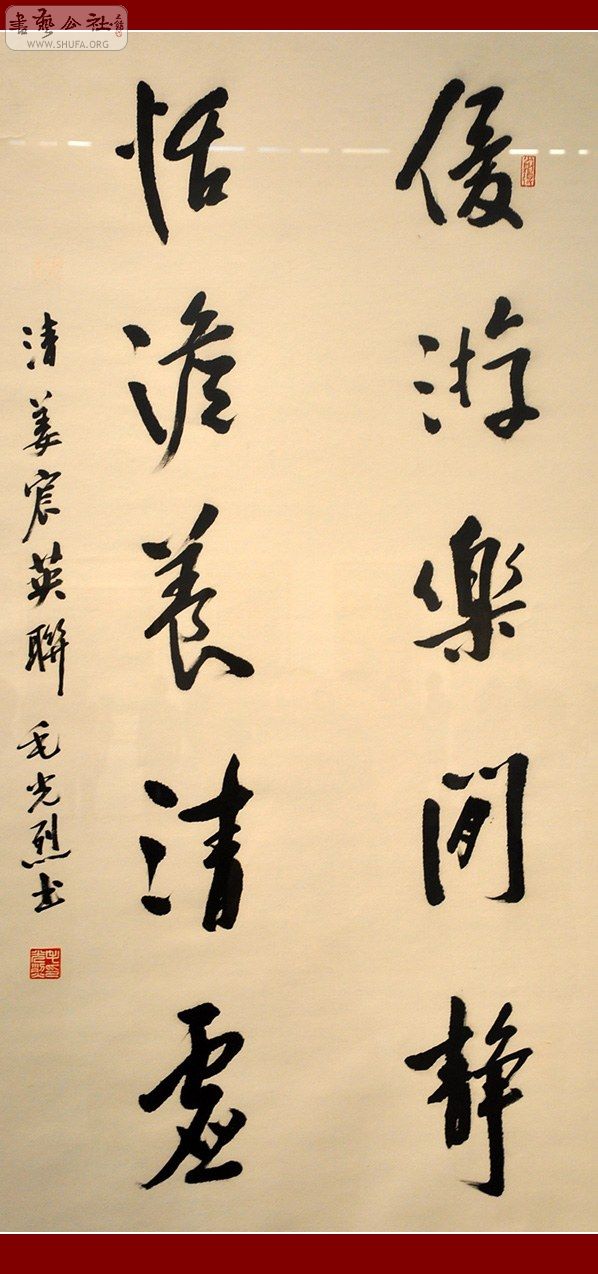 書藝公社
WWW.SHUFA.ORG
優游樂閒静
恬澹養清虚
清姜宸英聯 毛光烈书